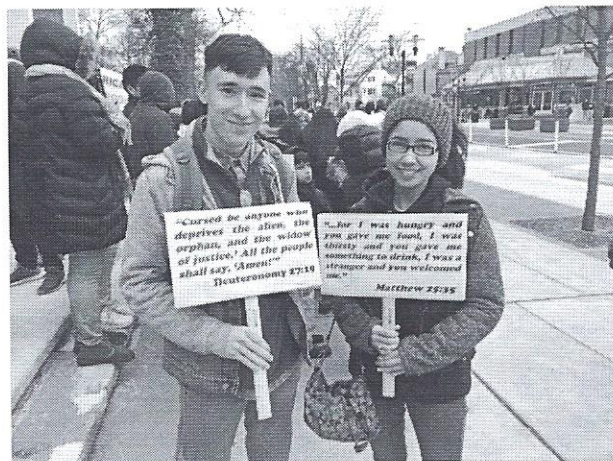 "Cursed be anyone who
deprives the alien, the
orphan, and the widow
of justice.' All the people
shall say, 'Amen!'"
Deuteronomy 27:19
"...for I was hungry and
you gave me food, I was
thirsty and you gave me
something to drink, I was a
stranger and you welcomed
me."
Matthew 25:35